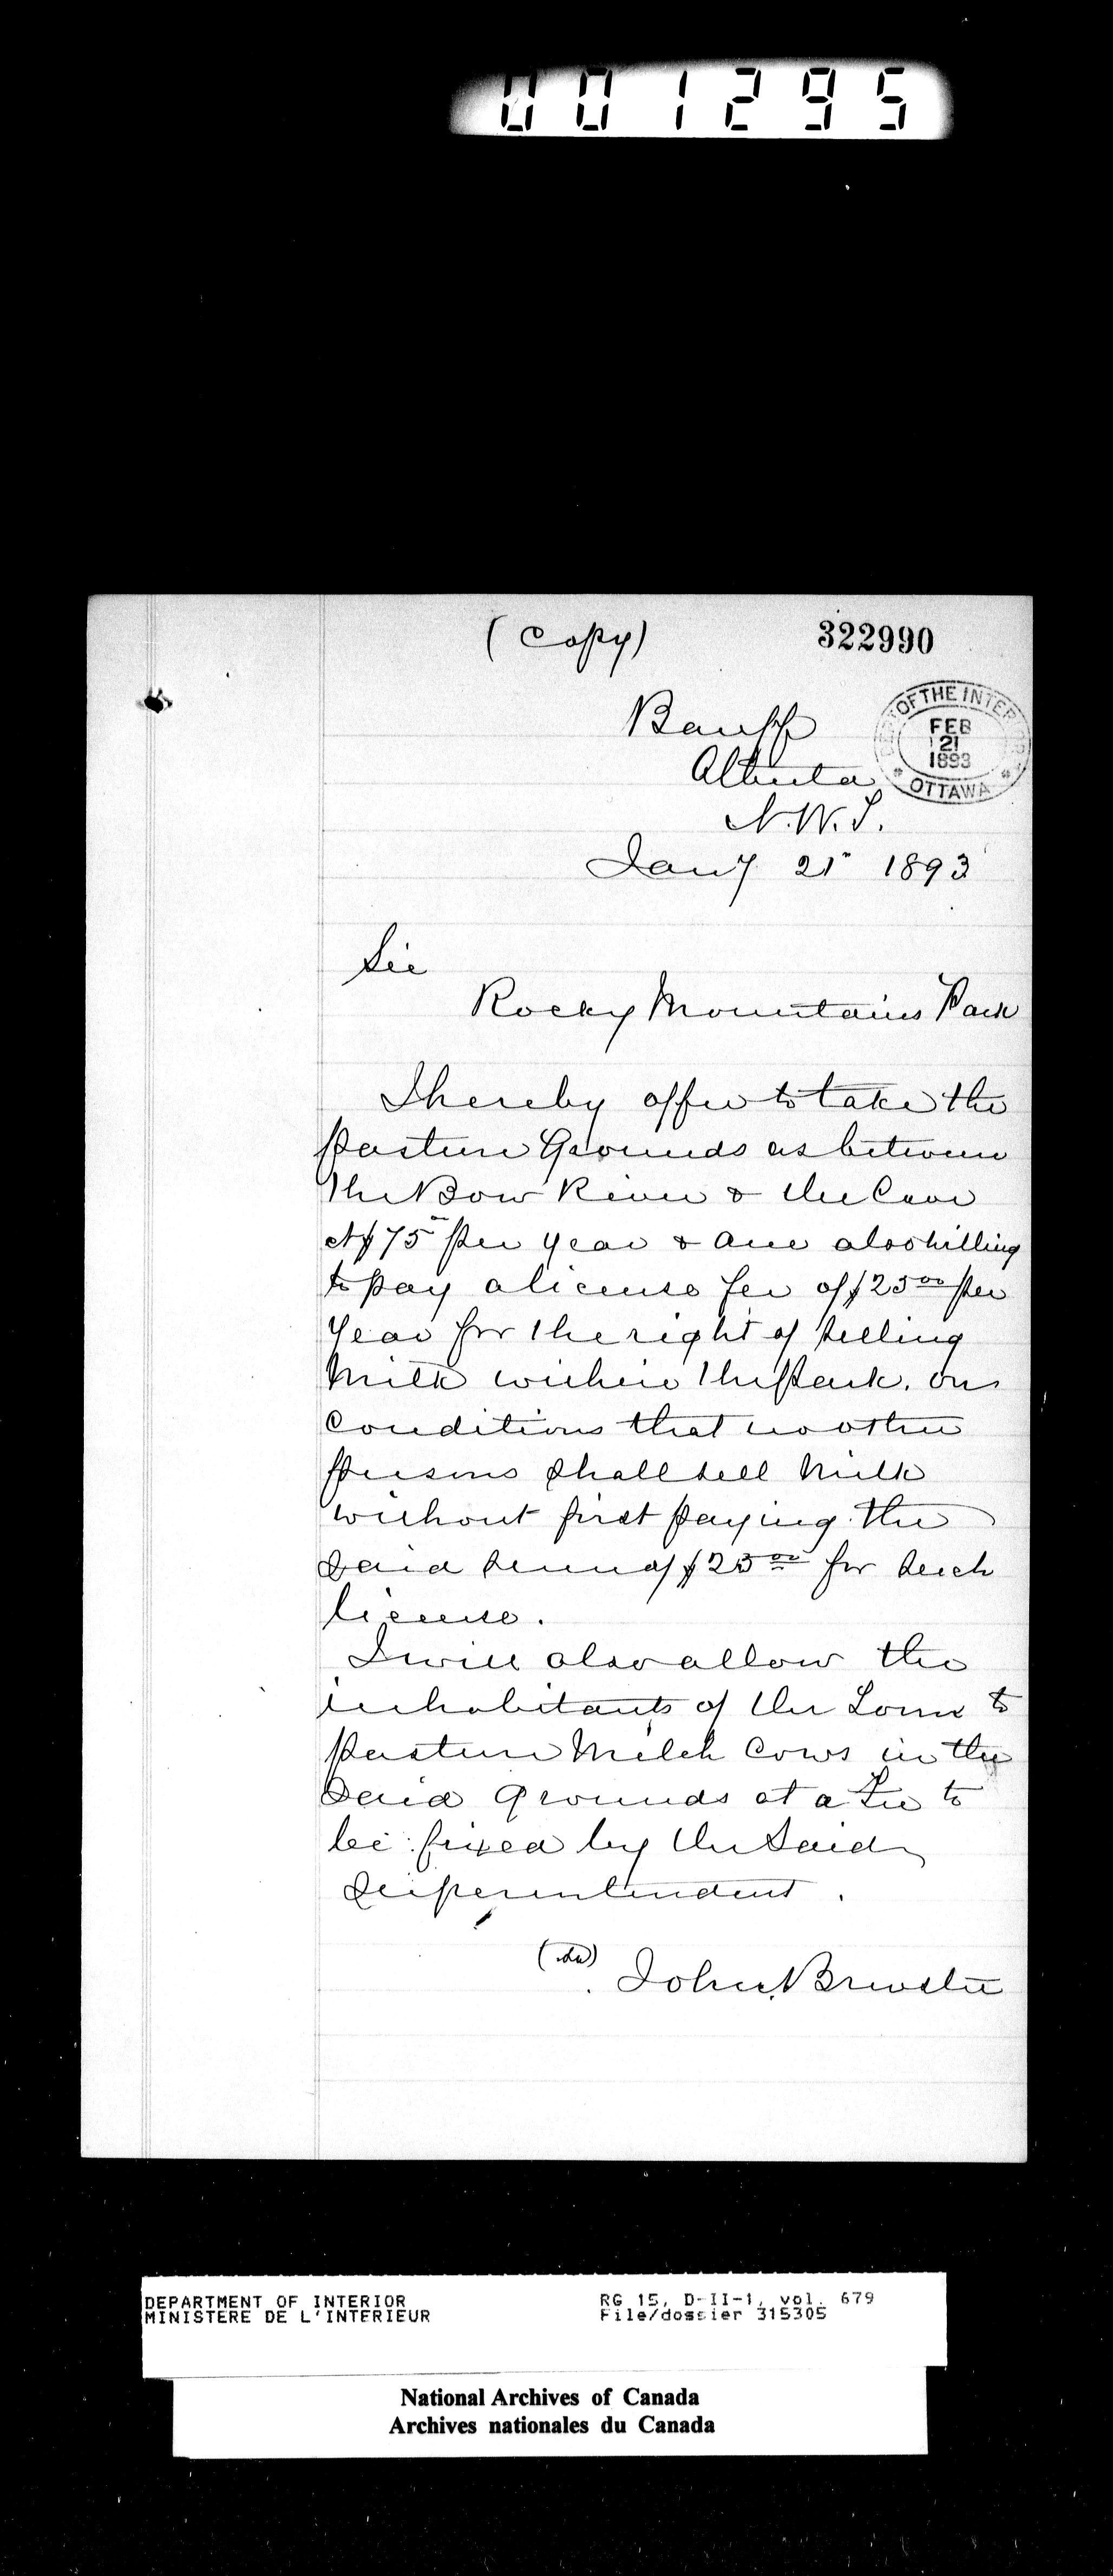 001295
(Copy)
322990
DEPT OF THE INTERIOR
FEB
21
1893
OTTAWA
Banff
Alberta
N.W.T.
Jany 21st 1893
Sir
Rocky Mountains Park
I hereby offer to take the
pasture Grounds as between
the Bow River & the Cave
at $75 per year & am also willing
to pay a license fee of $25.00 per
Year for the right of selling
Milk within the Park. on
Conditions that no other
persons shall sell Milk
without first paying the
said sum of $25.00 for such
license.
I will also allow the
inhabitants of the Town to
pasture Milch Cows in the
said Grounds at a Fee to
be fixed by the Said
Superintendent.
(sd)
John Brewster
DEPARTMENT OF INTERIOR
MINISTERE DE L'INTERIEUR
RG 15, D-II-1, vol. 679
File/dossier 315305
National Archives of Canada
Archives nationales du Canada